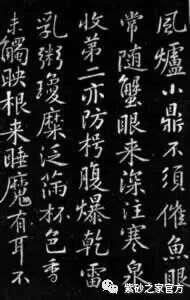 風爐小鼎不須催魚眼
常随蟹眼来深注寒泉
收第二亦防枵腹爆乾雷
乳粥瓊糜泛滿杯色香
未觸映根来睡魔有耳不
紫砂之家官方